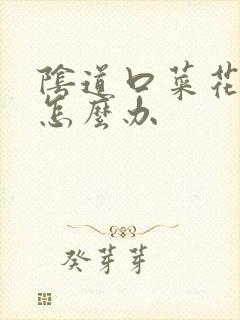 陰道口菜花
怎麼办
癸芽芽